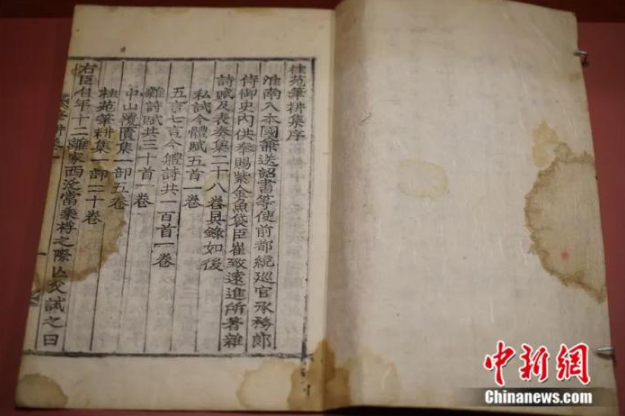 桂苑筆耕集序
淮南入本國兼送詔書等使前都統巡官承務郎
侍御史內供奉賜紫金魚袋臣崔致遠進所著雜
詩賦及表奏集二十八卷具錄如後
私試今體賦五首一卷
五言七言今體詩共一百首一卷
雜詩賦共三十首一卷
中山覆簣集一部五卷
桂苑筆耕集一部二十卷
右臣自年十二離家西泛當乘桴之際亡父誡之曰
中新网
Chinanews.com